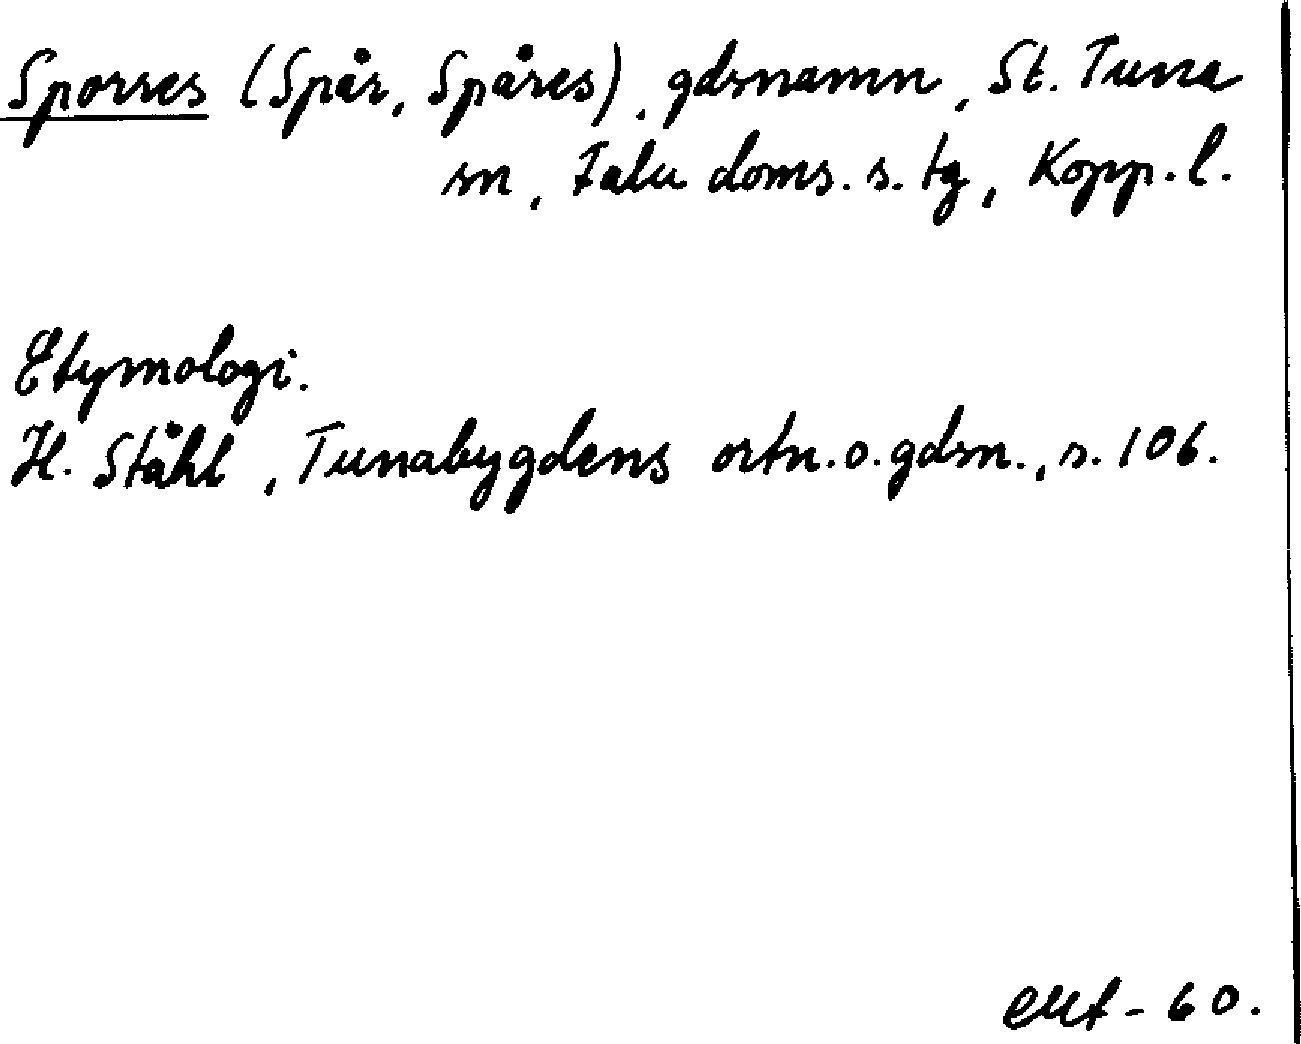 Sporres (Spår, Spåres), gdsnamn, St. Tuna
sn, Falu doms. s. tg, Kopp. l.
Etymologi.
H. Ståhl, Tunabygdens ortn. o. gdsn., s. 106.
- 60.